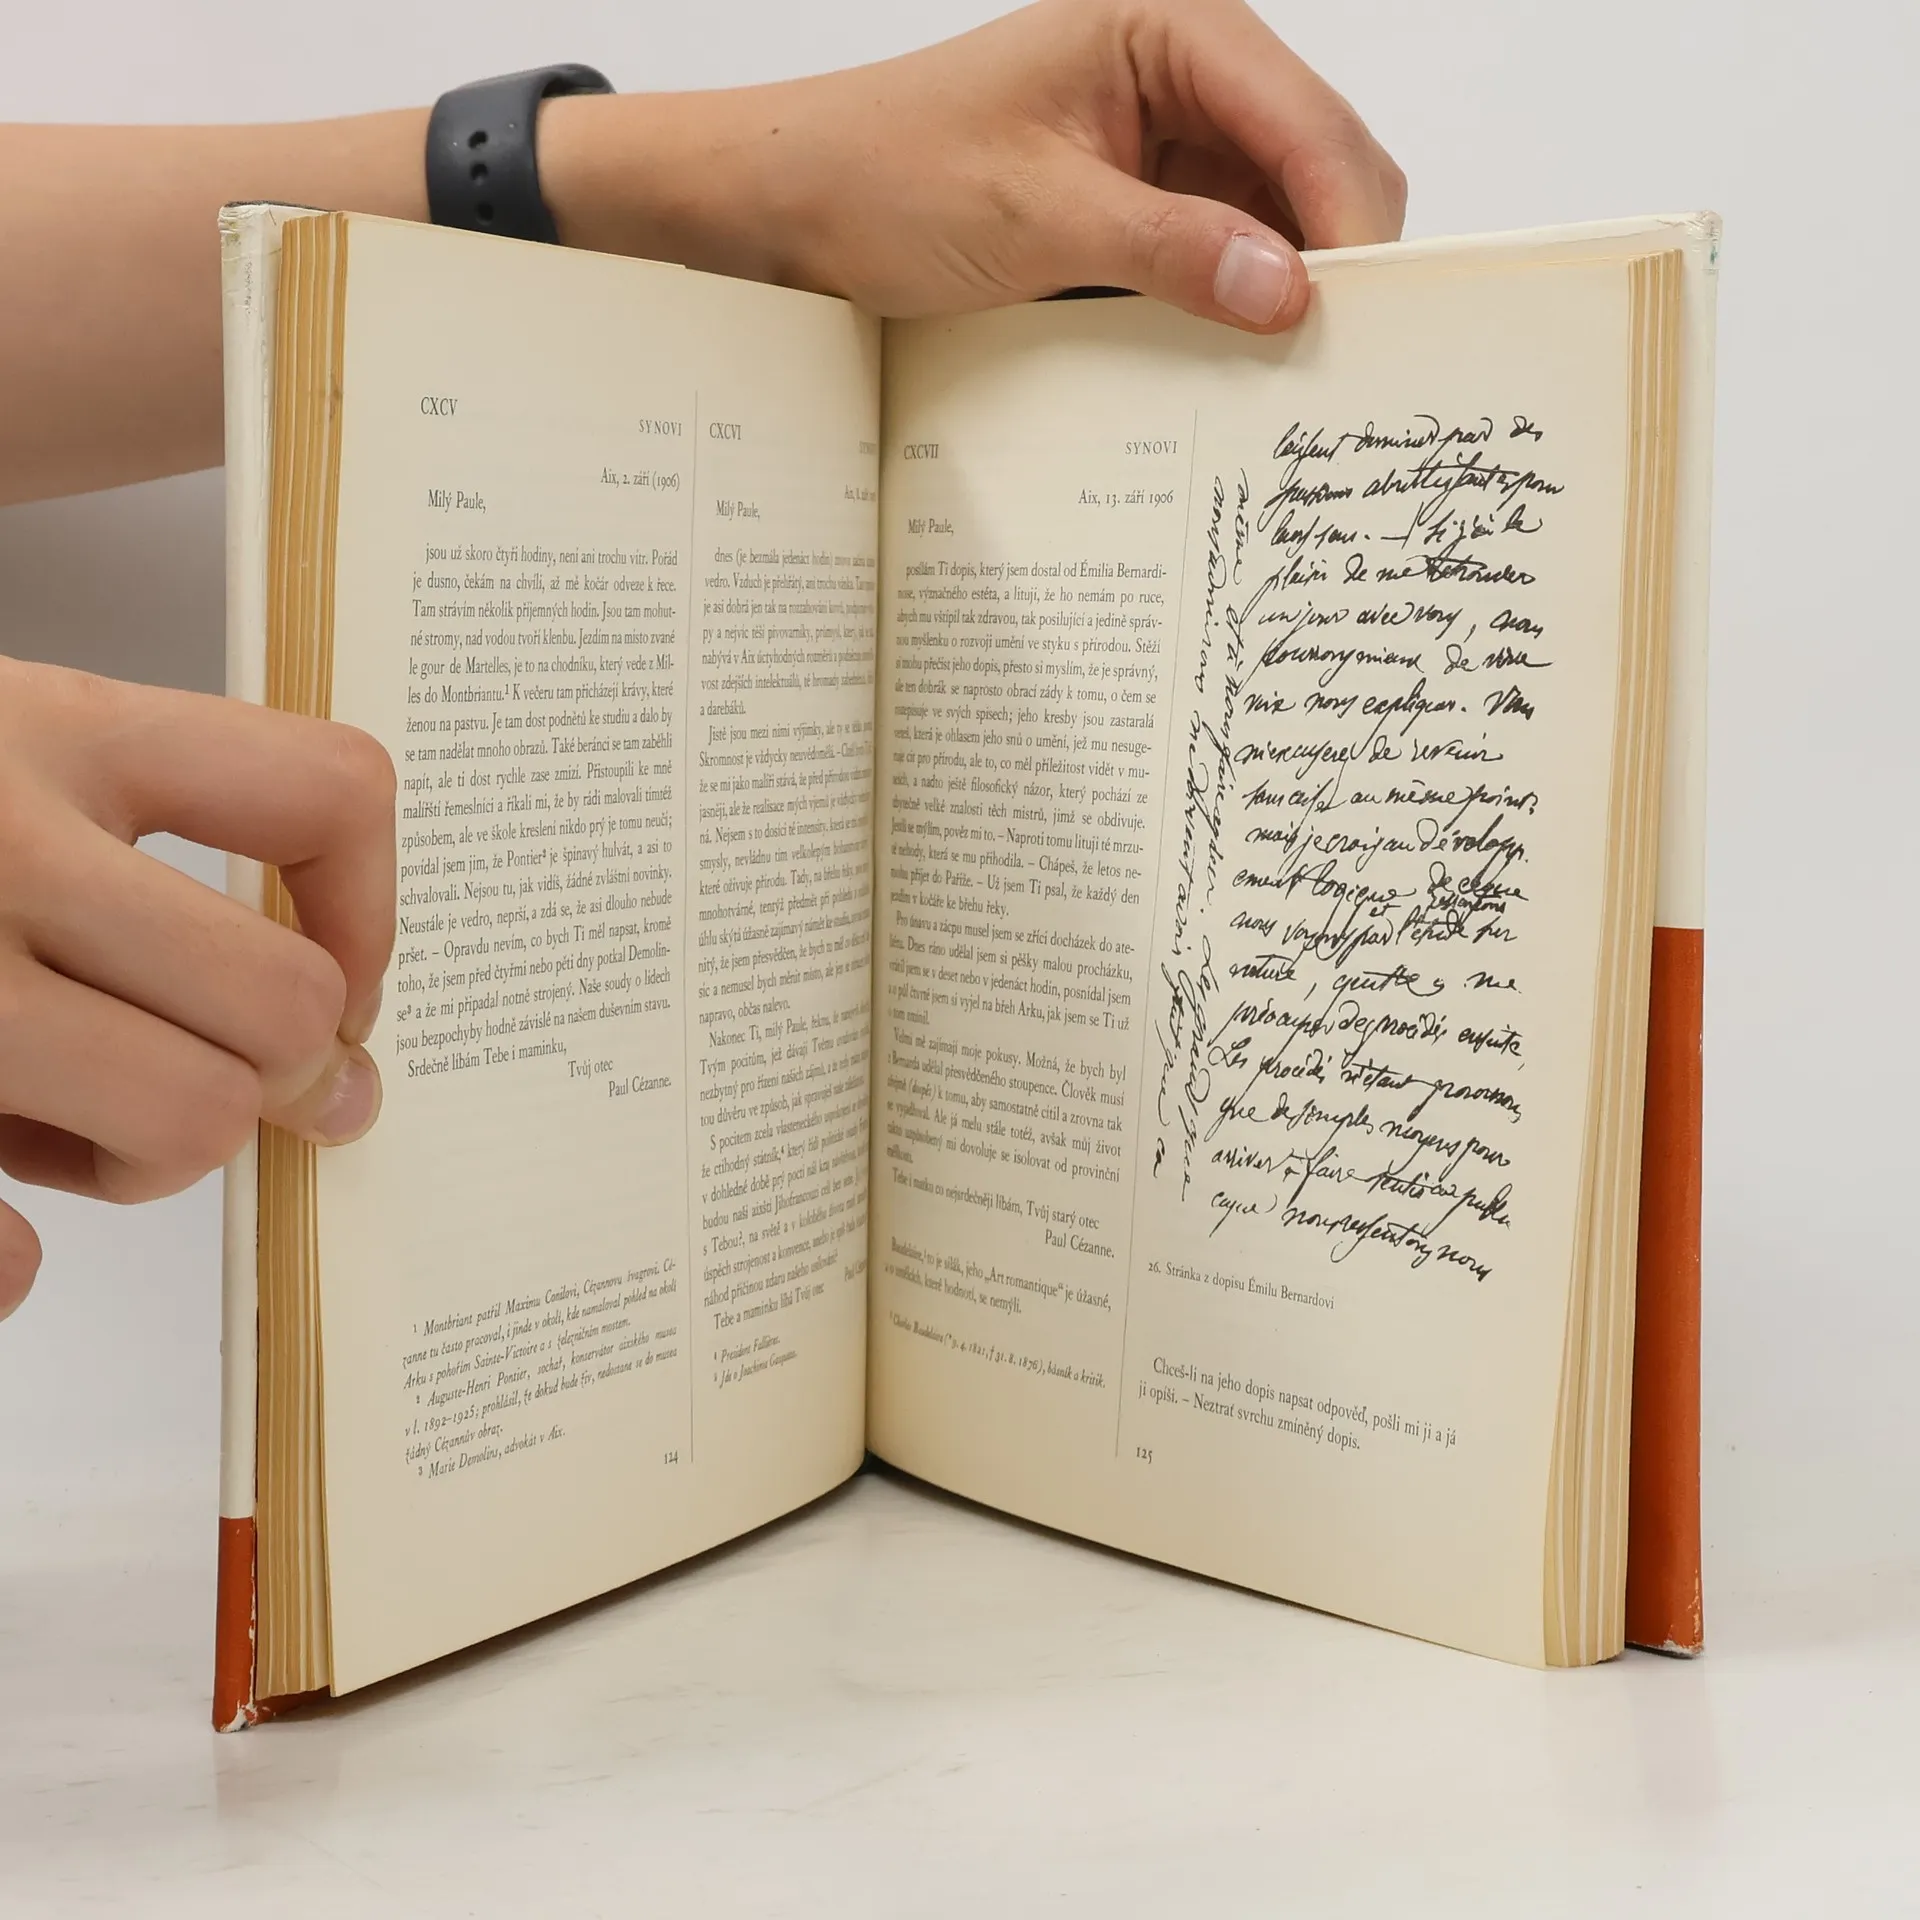 CXCV
SYNOVI
Aix, 2. září (1906)
Milý Paule,
jsou už skoro čtyři hodiny, není ani trochu vítr. Pořád
je dusno, čekám na chvíli, až mě kočár odveze k řece.
Tam strávím několik příjemných hodin. Jsou tam mohut-
né stromy, nad vodou tvoří klenbu. Jezdím na místo zvané
le gour de Martelles, je to na chodníku, který vede z Mil-
les do Montbriantu.¹ K večeru tam přicházejí krávy, které
ženou na pastvu. Je tam dost podnětů ke studiu a dalo by
se tam nadělat mnoho obrazů. Také beránci se tam zaběhli
napít, ale ti dost rychle zase zmizí. Přistoupili ke mně
malířští řemeslníci a říkali mi, že by rádi malovali timtéž
způsobem, ale ve škole kreslení nikdo prý je tomu neučí;
povídal jsem jim, že Pontier² je špinavý hulvát, a asi to
schvalovali. Nejsou tu, jak vidíš, žádné zvláštní novinky.
Neustále je vedro, neprší, a zdá se, že asi dlouho nebude
pršet. – Opravdu nevím, co bych Ti měl napsat, kromě
toho, že jsem před čtyřmi nebo pěti dny potkal Demolin-
se³ a že mi připadal notně strojený. Naše soudy o lidech
jsou bezpochyby hodně závislé na našem duševním stavu.
Srdečně líbám Tebe i maminku,
Tvůj otec
Paul Cézanne.
¹ Montbriant patřil Maximu Conilovi, Cézannovu švagrovi. Cé-
zanne tu často pracoval, i jinde v okolí, kde namaloval pohled na okolí
Arku s pohořím Sainte-Victoire a s železničním mostem.
² Auguste-Henri Pontier, sochař, konservátor aixského musea
v l. 1892–1925; prohlásil, že dokud bude živ, nedostane se do musea
žádný Cézannův obraz.
³ Marie Demolins, advokát v Aix.
124
CXCVI
Milý Paule,
dnes (je bezmála jedenáct hodin) znovu
vedro. Vzduch je přehřátý, ani trochu vánku.
je asi dobrá jen tak na roztahování kovů,
py a nejvíc těší pivovarníky, průmysl, který,
nabývá v Aix úctyhodných rozměrů a
vost zdejších intelektuálů, té hromady
a darebáků.
Jistě jsou mezi nimi výjimky, ale ty se
Skromnost je vždycky neuvědomělá. –
že se mi jako malíři stává, že před přírodou vidím
jasněji, ale že realisace mých vjemů je vždycky
ná. Nejsem s to dosíci té intensity, která se
smysly, nevládnu tím velkolepým bohatstvím
které oživuje přírodu. Tady, na břehu řeky,
mnohotvárné, tentýž předmět při pohledu
úhlu skýtá úžasně zajímavý námět ke studiu,
nitý, že jsem přesvědčen, že bych tu měl co dělat
síc a nemusel bych měnit místo, ale jen se
napravo, občas nalevo.
Nakonec Ti, milý Paule, řeknu, že
Tvým pocitům, jež dávají Tvému
nezbytný pro řízení našich zájmů, a že
tou důvěru ve způsob, jak spravuješ naše záležitosti.
S pocitem zcela vlasteneckého uspokojení
že ctihodný státník,⁴ který řídí politické osudy
v dohledné době prý poctí náš kraj návštěvou,
budou naši aixští Jihofrancouzi celí bez sebe.
s Tebou?, na světě a v koloběhu života
úspěch strojenost a konvence, anebo je
náhod příčinou zdaru našeho usilování?
Tebe a maminku líbá Tvůj otec
⁴ President Fallières.
⁵ Jde o Joachima Gasqueta.
CXCVII
SYNOVI
Aix, 13. září 1906
Milý Paule,
posílám Ti dopis, který jsem dostal od Émilia Bernardi-
nose, význačného estéta, a lituji, že ho nemám po ruce,
abych mu vštípil tak zdravou, tak posilující a jedině správ-
nou myšlenku o rozvoji umění ve styku s přírodou. Stěží
si mohu přečíst jeho dopis, přesto si myslím, že je správný,
ale ten dobrák se naprosto obrací zády k tomu, o čem se
rozepisuje ve svých spisech; jeho kresby jsou zastaralá
veteš, která je ohlasem jeho snů o umění, jež mu nesuge-
ruje cit pro přírodu, ale to, co měl příležitost vidět v mu-
seích, a nadto ještě filosofický názor, který pochází ze
zbytečně velké znalosti těch mistrů, jimž se obdivuje.
Jestli se mýlím, pověz mi to. – Naproti tomu lituji té mrzu-
té nehody, která se mu přihodila. – Chápeš, že letos ne-
mohu přijet do Paříže. – Už jsem Ti psal, že každý den
jezdím v kočáře ke břehu řeky.
Pro únavu a zácpu musel jsem se zříci docházek do ate-
liéru. Dnes ráno udělal jsem si pěšky malou procházku,
vrátil jsem se v deset nebo v jedenáct hodin, posnídal jsem
a o půl čtvrté jsem si vyjel na břeh Arku, jak jsem se Ti už
o tom zmínil.
Velmi mě zajímají moje pokusy. Možná, že bych byl
z Bernarda udělal přesvědčeného stoupence. Člověk musí
zřejmě (dospět) k tomu, aby samostatně cítil a zrovna tak
se vyjadřoval. Ale já melu stále totéž, avšak můj život
takto uzpůsobený mi dovoluje se isolovat od provinční
mělkosti.
Tebe i matku co nejsrdečněji líbám, Tvůj starý otec
Paul Cézanne.
Baudelaire,¹ to je silák, jeho „Art romantique“ je úžasné,
a o umělcích, které hodnotí, se nemýlí.
¹ Charles Baudelaire (* 9. 4. 1821, † 31. 8. 1876), básník a kritik.
125
laissent dominer par des
passions abrutissantes pour
leurs sens. – Si j'ai le
plaisir de me retrouver
un jour avec vous, nous
pourrons mieux de vive
vive nous expliquer. Vous
m'excuserez de revenir
sans cesse au même point;
mais je crois au développ.
ement logique de ce que
nous voyons et ressentons par l'étude sur
nature, quitte à me
préoccuper des procédés ensuite,
Les procédés n'étant pour nous
que de simples moyens pour
arriver à faire sentir au public
ce que nous ressentons nous
26. Stránka z dopisu Émilu Bernardovi
Chceš-li na jeho dopis napsat odpověď, pošli mi ji a já
ji opíši. – Neztrať svrchu zmíněný dopis.